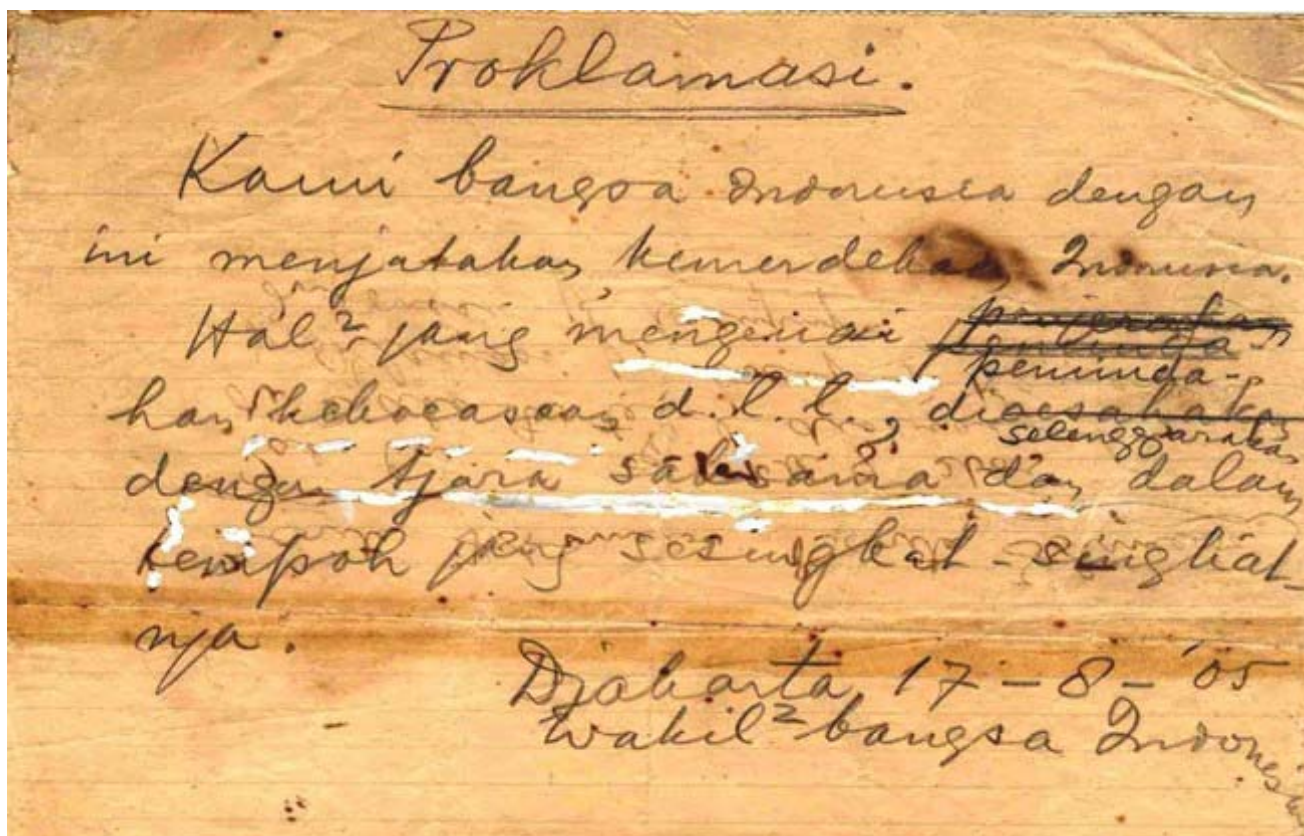 Proklamasi.
Kami bangsa Indonesia dengan
ini menjatakan kemerdekaan Indonesia.
Hal² jang mengenai penjerahan
pemindahan
peminda-
han kekoeasaan d.l.l., dioesahakan
selenggarakan
dengan tjara saksama dan dalam
tempoh jang sesingkat-singkat-
nja.
Djakarta, 17 - 8 - '05
Wakil² bangsa Indonesia